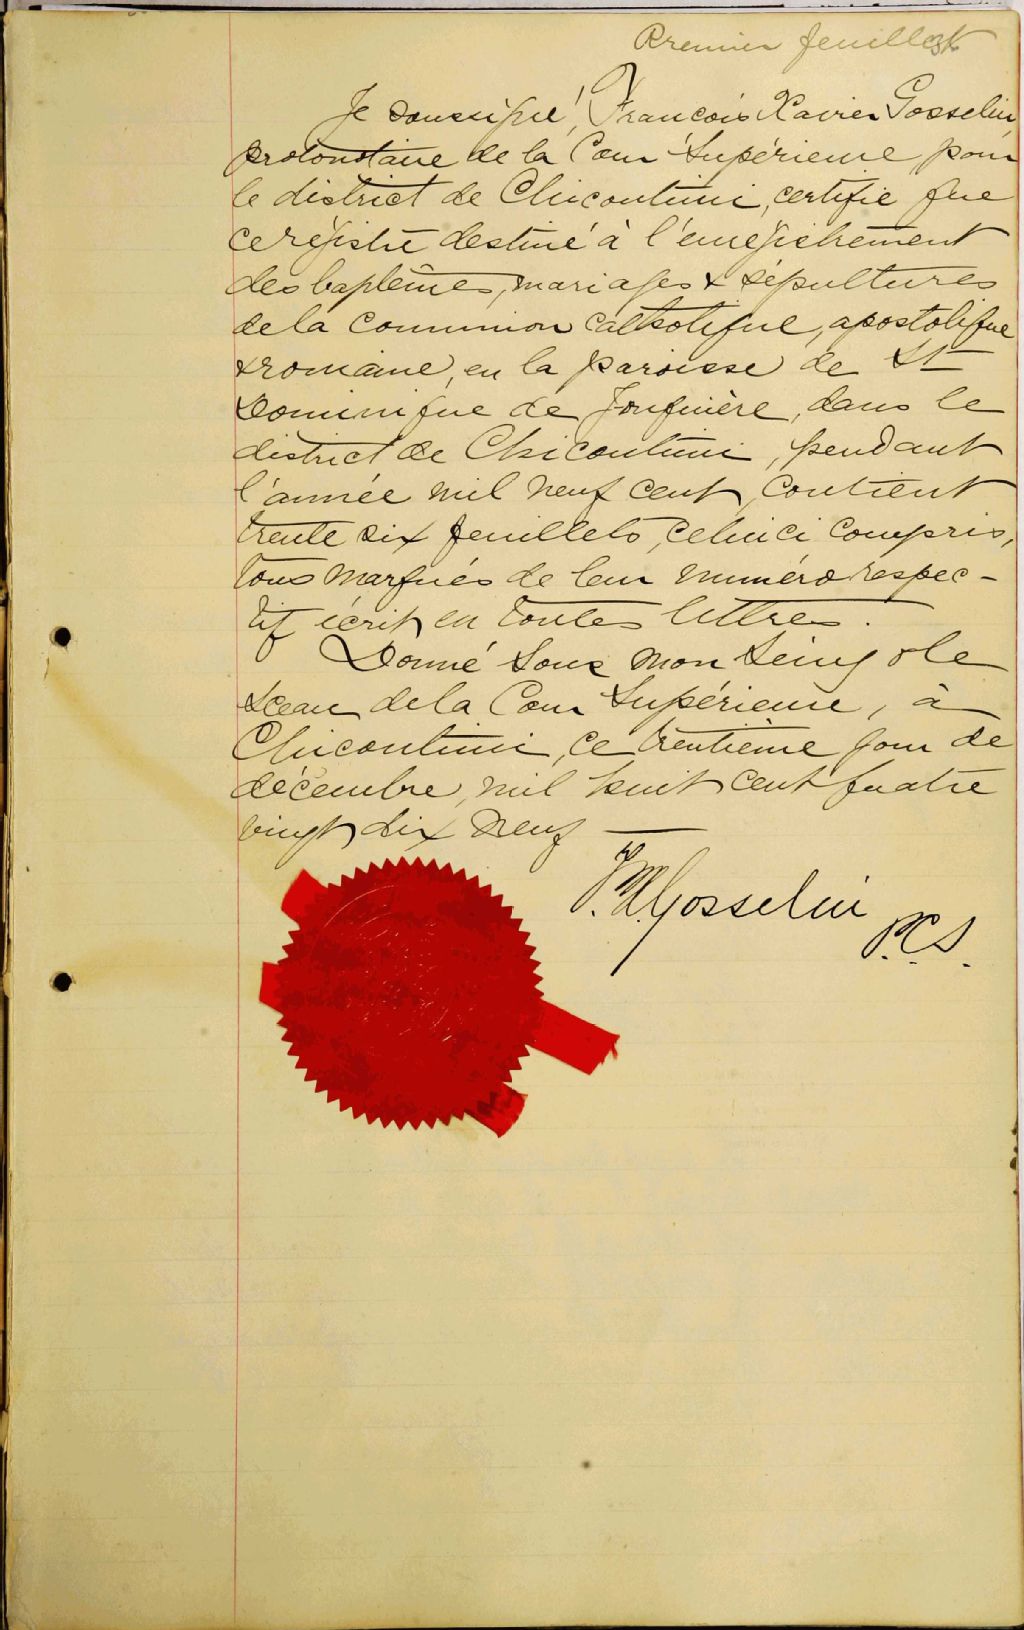 Premier feuillet
Je soussigné, François Xavier Gosselin,
protonotaire de la Cour Supérieure pour
le district de Chicoutimi, certifie que
ce régistre destiné à l'enregistrement
des baptêmes, mariages & sépultures
de la communion catholique, apostolique
& romaine, en la paroisse de St
Dominique de Jonquière, dans le
district de Chicoutimi, pendant
l'année mil neuf cent, contient
trente six feuillets, celui ci compris,
tous marqués de leur numéro respec-
tif écrit en toutes lettres.
Donné sous mon seing & le
sceau de la Cour Supérieure, à
Chicoutimi, ce trentième jour de
décembre, mil huit cent quatre
vingt dix neuf —
F. X. Gosselin
P.C.S.